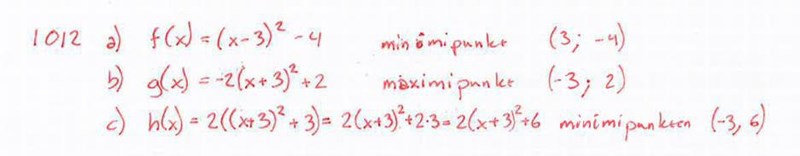 1012 a) f(x) = (x-3)² - 4 minimipunkt (3; -4)
b) g(x) = -2(x+3)² + 2 maximipunkt (-3; 2)
c) h(x) = 2((x+3)² + 3) = 2(x+3)² + 2·3 = 2(x+3)² + 6 minimipunkten (-3, 6)